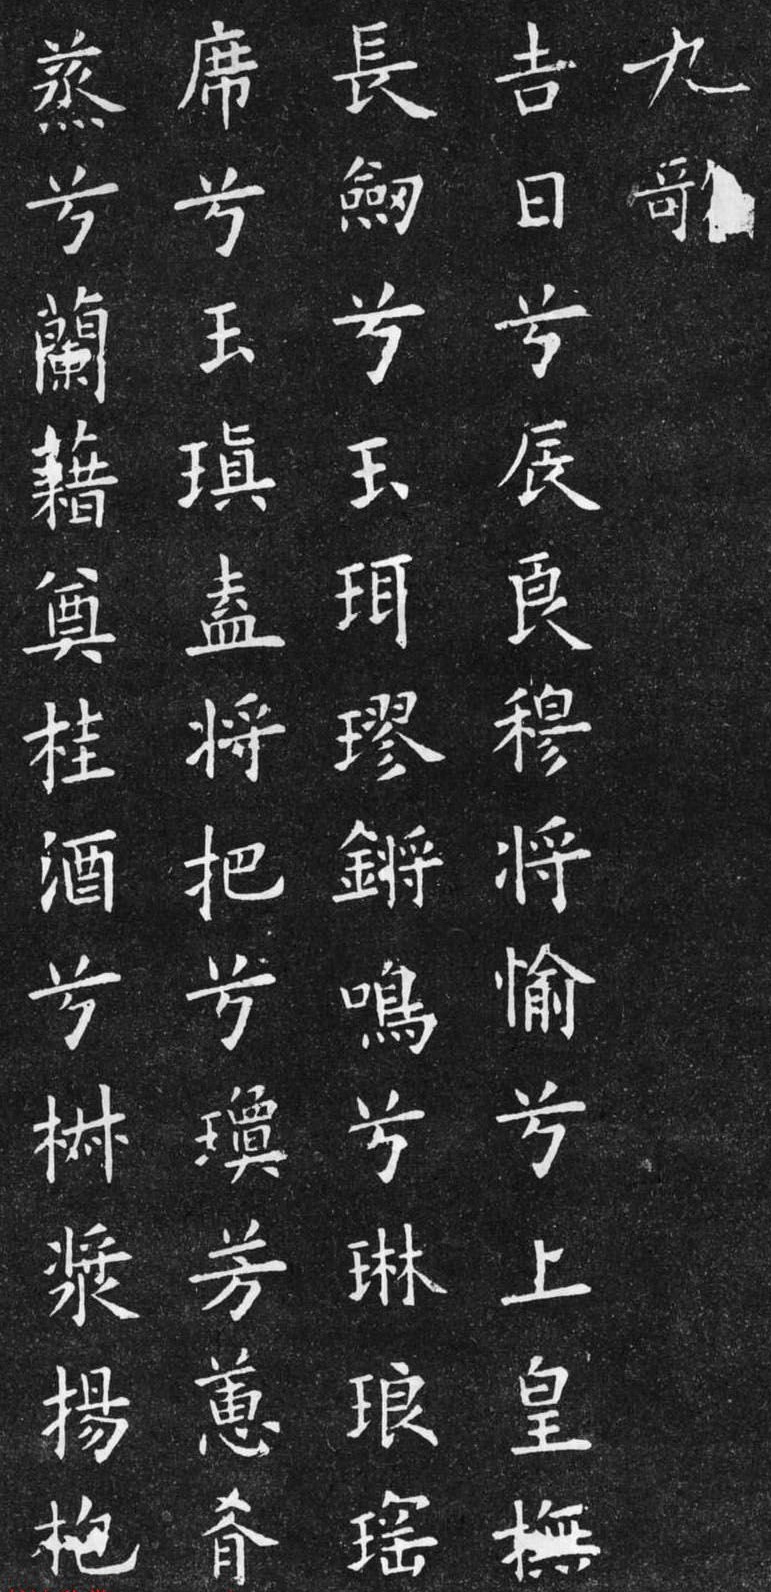 九歌
吉日兮辰良穆将愉兮上皇撫
長劒兮玉珥璆鏘鳴兮琳琅瑤
席兮玉瑱盍将把兮瓊芳蕙肴
蒸兮蘭藉奠桂酒兮椒漿揚枹